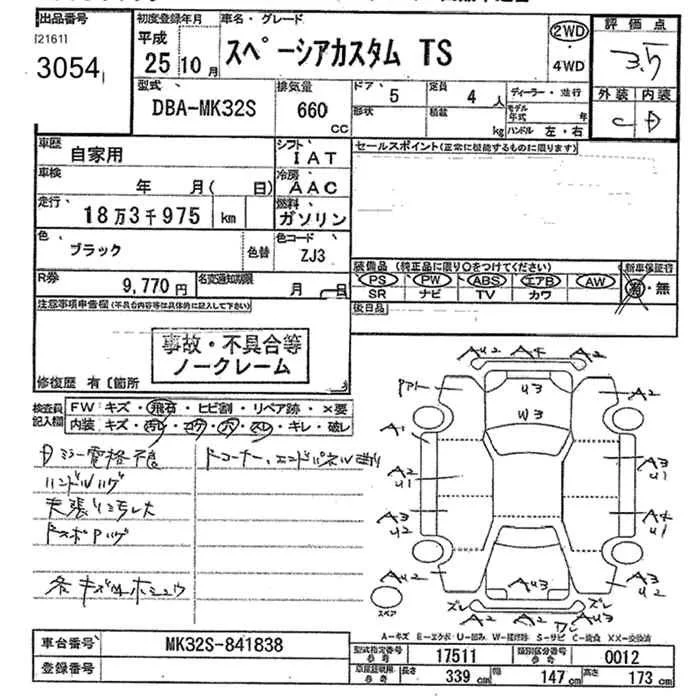 出品番号 初度登録年月 車名・グレード 評価点
[2161]
3054 平成 25 10月 スペーシアカスタム TS 2WD ・ 4WD 3.5
型式 排気量 ドア・ 形状 定員 積載 ディーラー・並行 外装 内装
DBA-MK32S 660 CC 5 4 人 kg モデル年式 年 ハンドル 左・右 C D
車歴 自家用 シフト IAT セールスポイント(正常に機能するものに限ります)
車検 年 月( 日) 冷房 AAC
走行 18万3千975 km 燃料 ガソリン
色 ブラック 色替 色コード ZJ3
装備品(純正品に限り○をつけてください) 新車保証書
PS PW ABS エアB AW 有・無
SR ナビ TV カワ
R券 9,770円 名変通知期限 月 日
後日品
注意事項申告欄(不具合内容等は具体的に記入して下さい)
事故・不具合等
ノークレーム
修復歴 有〔箇所
検査員記入欄 FW キズ・飛石・ヒビ割・リペア跡・×要
内装 キズ・汚れ・コゲ・穴・スレ・キレ・破レ
Dミラー電格不良
ハンドルハゲ
天張り汚レ大
A42 A4 A2
PP1 U3 A2
W3
A1
A2 U1 A3 U1
A3 U2 A4 U1
A42 A43 A3 U2
スペア ズレ ズレ
A-キズ E-エクボ U-凹み W-補修跡 S-サビ C-腐食 XX-交換済
車台番号 MK32S-841838
登録番号
型式指定番号 参考 17511 類別区分番号 参考 0012
長さ 339 cm 幅 147 cm 高さ 173 cm